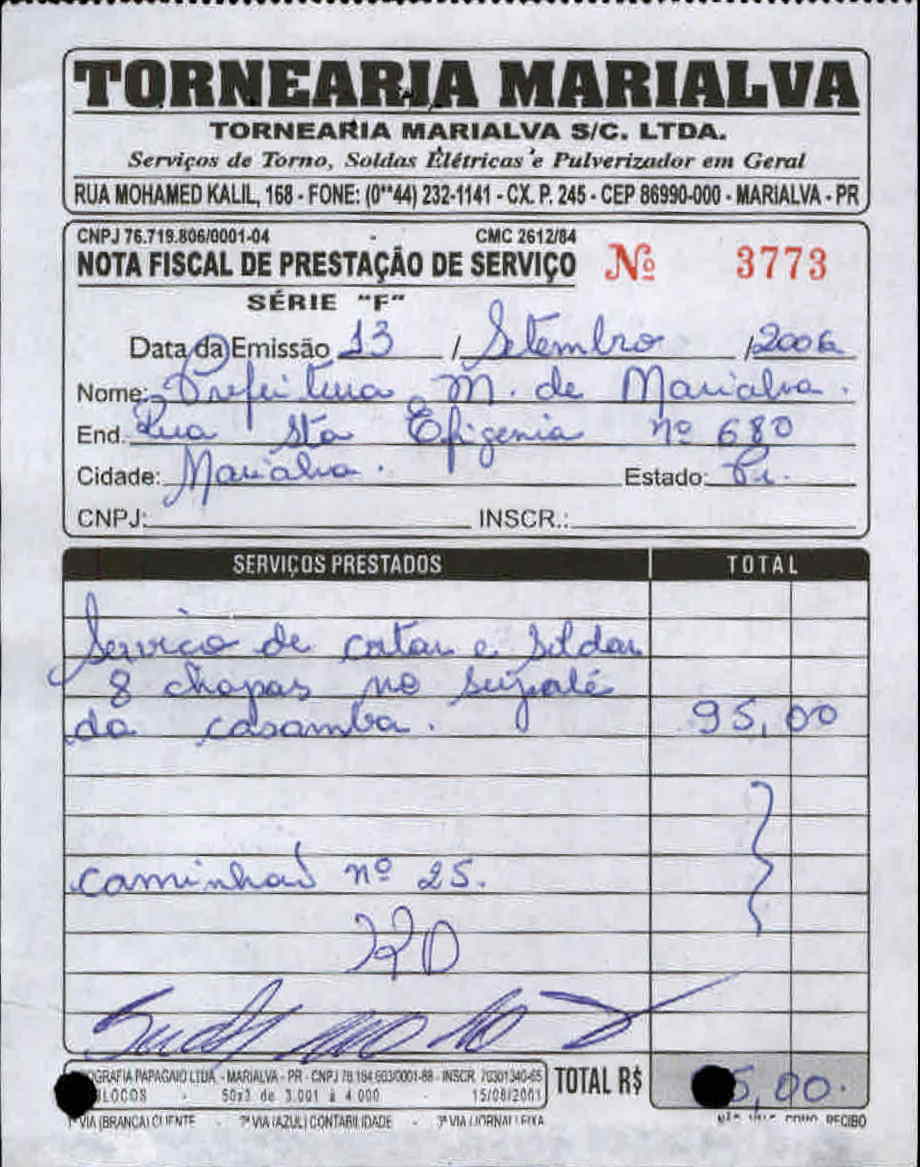 TORNEARIA MARIALVA
TORNEARIA MARIALVA S/C. LTDA.
Serviços de Torno, Soldas Elétricas e Pulverizador em Geral
RUA MOHAMED KALIL, 168 - FONE: (0**44) 232-1141 - CX. P. 245 - CEP 86990-000 - MARIALVA - PR
CNPJ 76.719.806/0001-04 - CMC 2612/84
NOTA FISCAL DE PRESTAÇÃO DE SERVIÇO Nº 3773
SÉRIE "F"
Data da Emissão 13 / Setembro /2006
Nome: Prefeitura M. de Marialva.
End. Rua Sta Efigenia nº 680
Cidade: Marialva. Estado: Pr.
CNPJ: INSCR.:
SERVIÇOS PRESTADOS TOTAL
Serviço de cortar e soldar
8 chapas no
da casamba. 95,00
caminhaõ nº 25.
PAPAGAIO LTDA. - MARIALVA - PR - CNPJ 78.194.603/0001-88 - INSCR. 70301340-65
BLOCOS - 50x3 de 3.001 à 4.000 - 15/08/2001
TOTAL R$ 5,00.
1ª VIA (BRANCA) CLIENTE - 2ª VIA (AZUL) CONTABILIDADE - 3ª VIA (JORNAL) FIXA COMO RECIBO